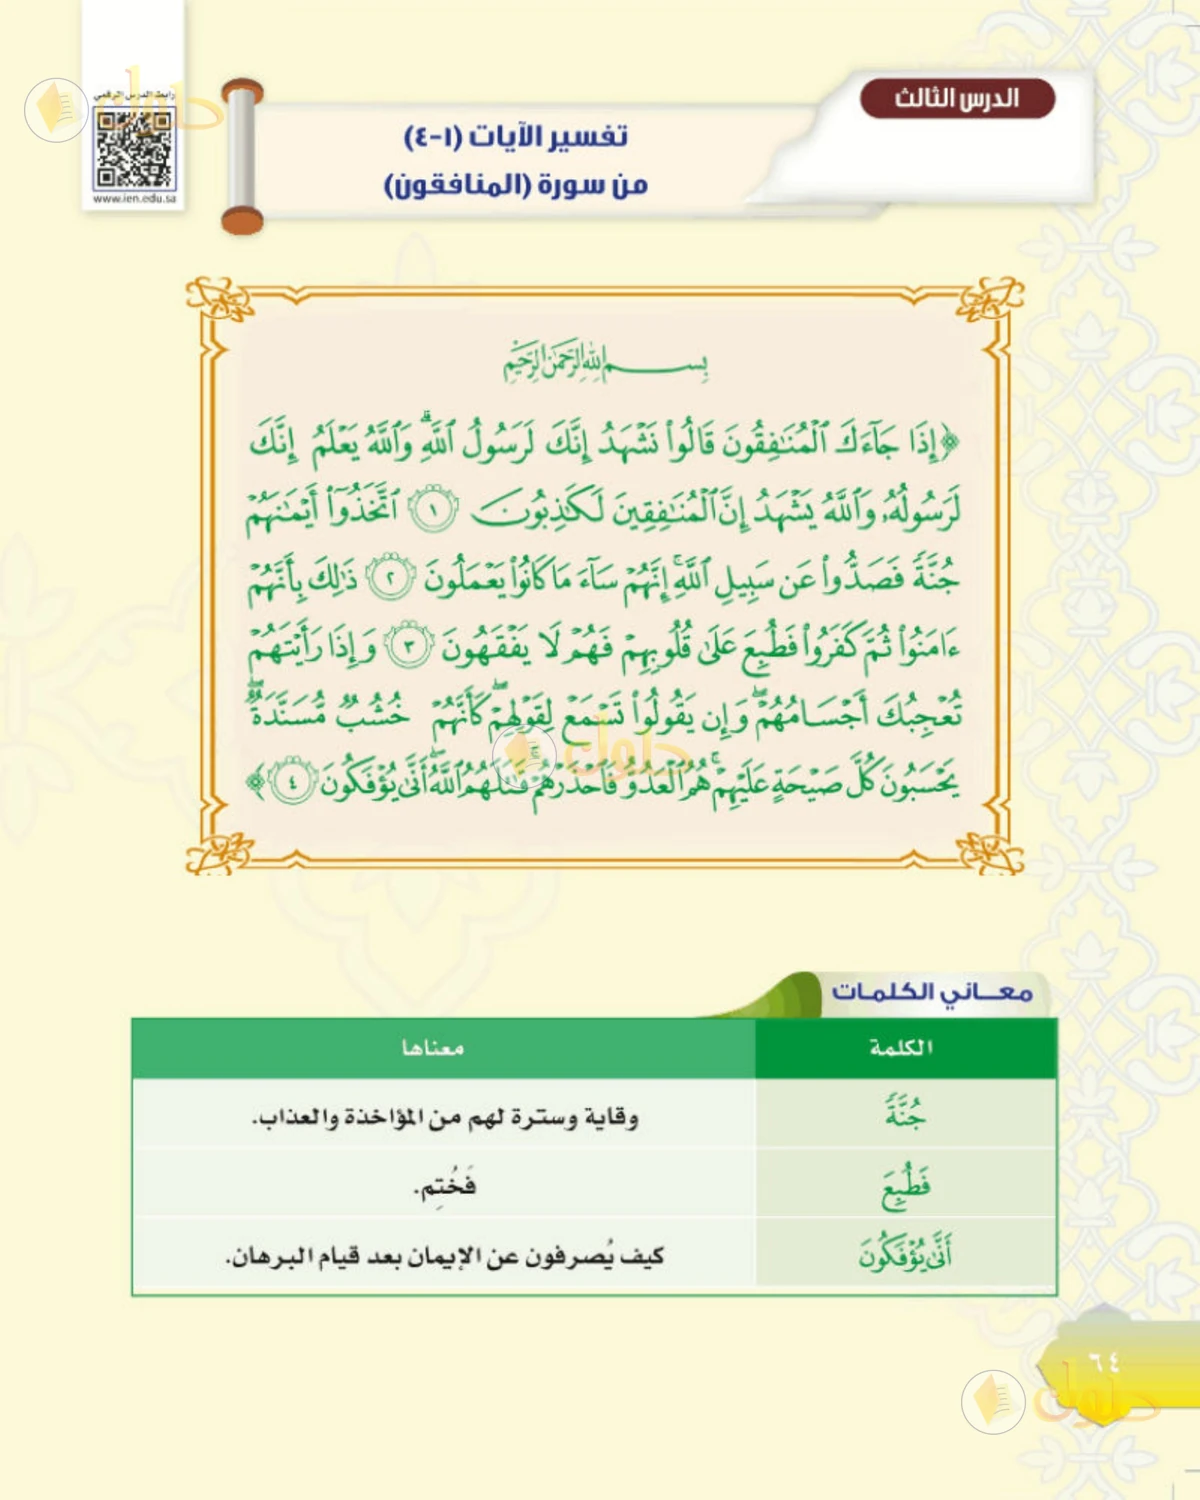 الدرس الثالث
رابط الدرس الرقمي
www.ien.edu.sa
تفسير الآيات (١-٤)
من سورة (المنافقون)
بِسْمِ ٱللَّهِ ٱلرَّحْمَٰنِ ٱلرَّحِيمِ
﴿إِذَا جَآءَكَ ٱلْمُنَٰفِقُونَ قَالُوا۟ نَشْهَدُ إِنَّكَ لَرَسُولُ ٱللَّهِ ۗ وَٱللَّهُ يَعْلَمُ إِنَّكَ
لَرَسُولُهُۥ وَٱللَّهُ يَشْهَدُ إِنَّ ٱلْمُنَٰفِقِينَ لَكَٰذِبُونَ ١ ٱتَّخَذُوٓا۟ أَيْمَٰنَهُمْ
جُنَّةً فَصَدُّوا۟ عَن سَبِيلِ ٱللَّهِ ۚ إِنَّهُمْ سَآءَ مَا كَانُوا۟ يَعْمَلُونَ ٢ ذَٰلِكَ بِأَنَّهُمْ
ءَامَنُوا۟ ثُمَّ كَفَرُوا۟ فَطُبِعَ عَلَىٰ قُلُوبِهِمْ فَهُمْ لَا يَفْقَهُونَ ٣ وَإِذَا رَأَيْتَهُمْ
تُعْجِبُكَ أَجْسَامُهُمْ ۖ وَإِن يَقُولُوا۟ تَسْمَعْ لِقَوْلِهِمْ ۖ كَأَنَّهُمْ خُشُبٌ مُّسَنَّدَةٌ ۖ
يَحْسَبُونَ كُلَّ صَيْحَةٍ عَلَيْهِمْ ۚ هُمُ ٱلْعَدُوُّ فَٱحْذَرْهُمْ ۚ قَٰتَلَهُمُ ٱللَّهُ ۖ أَنَّىٰ يُؤْفَكُونَ ٤﴾
حلول
معاني الكلمات
الكلمة معناها
جُنَّةً وقاية وسترة لهم من المؤاخذة والعذاب.
فَطُبِعَ فَخُتِم.
أَنَّىٰ يُؤْفَكُونَ كيف يُصرفون عن الإيمان بعد قيام البرهان.
٦٤
حلول